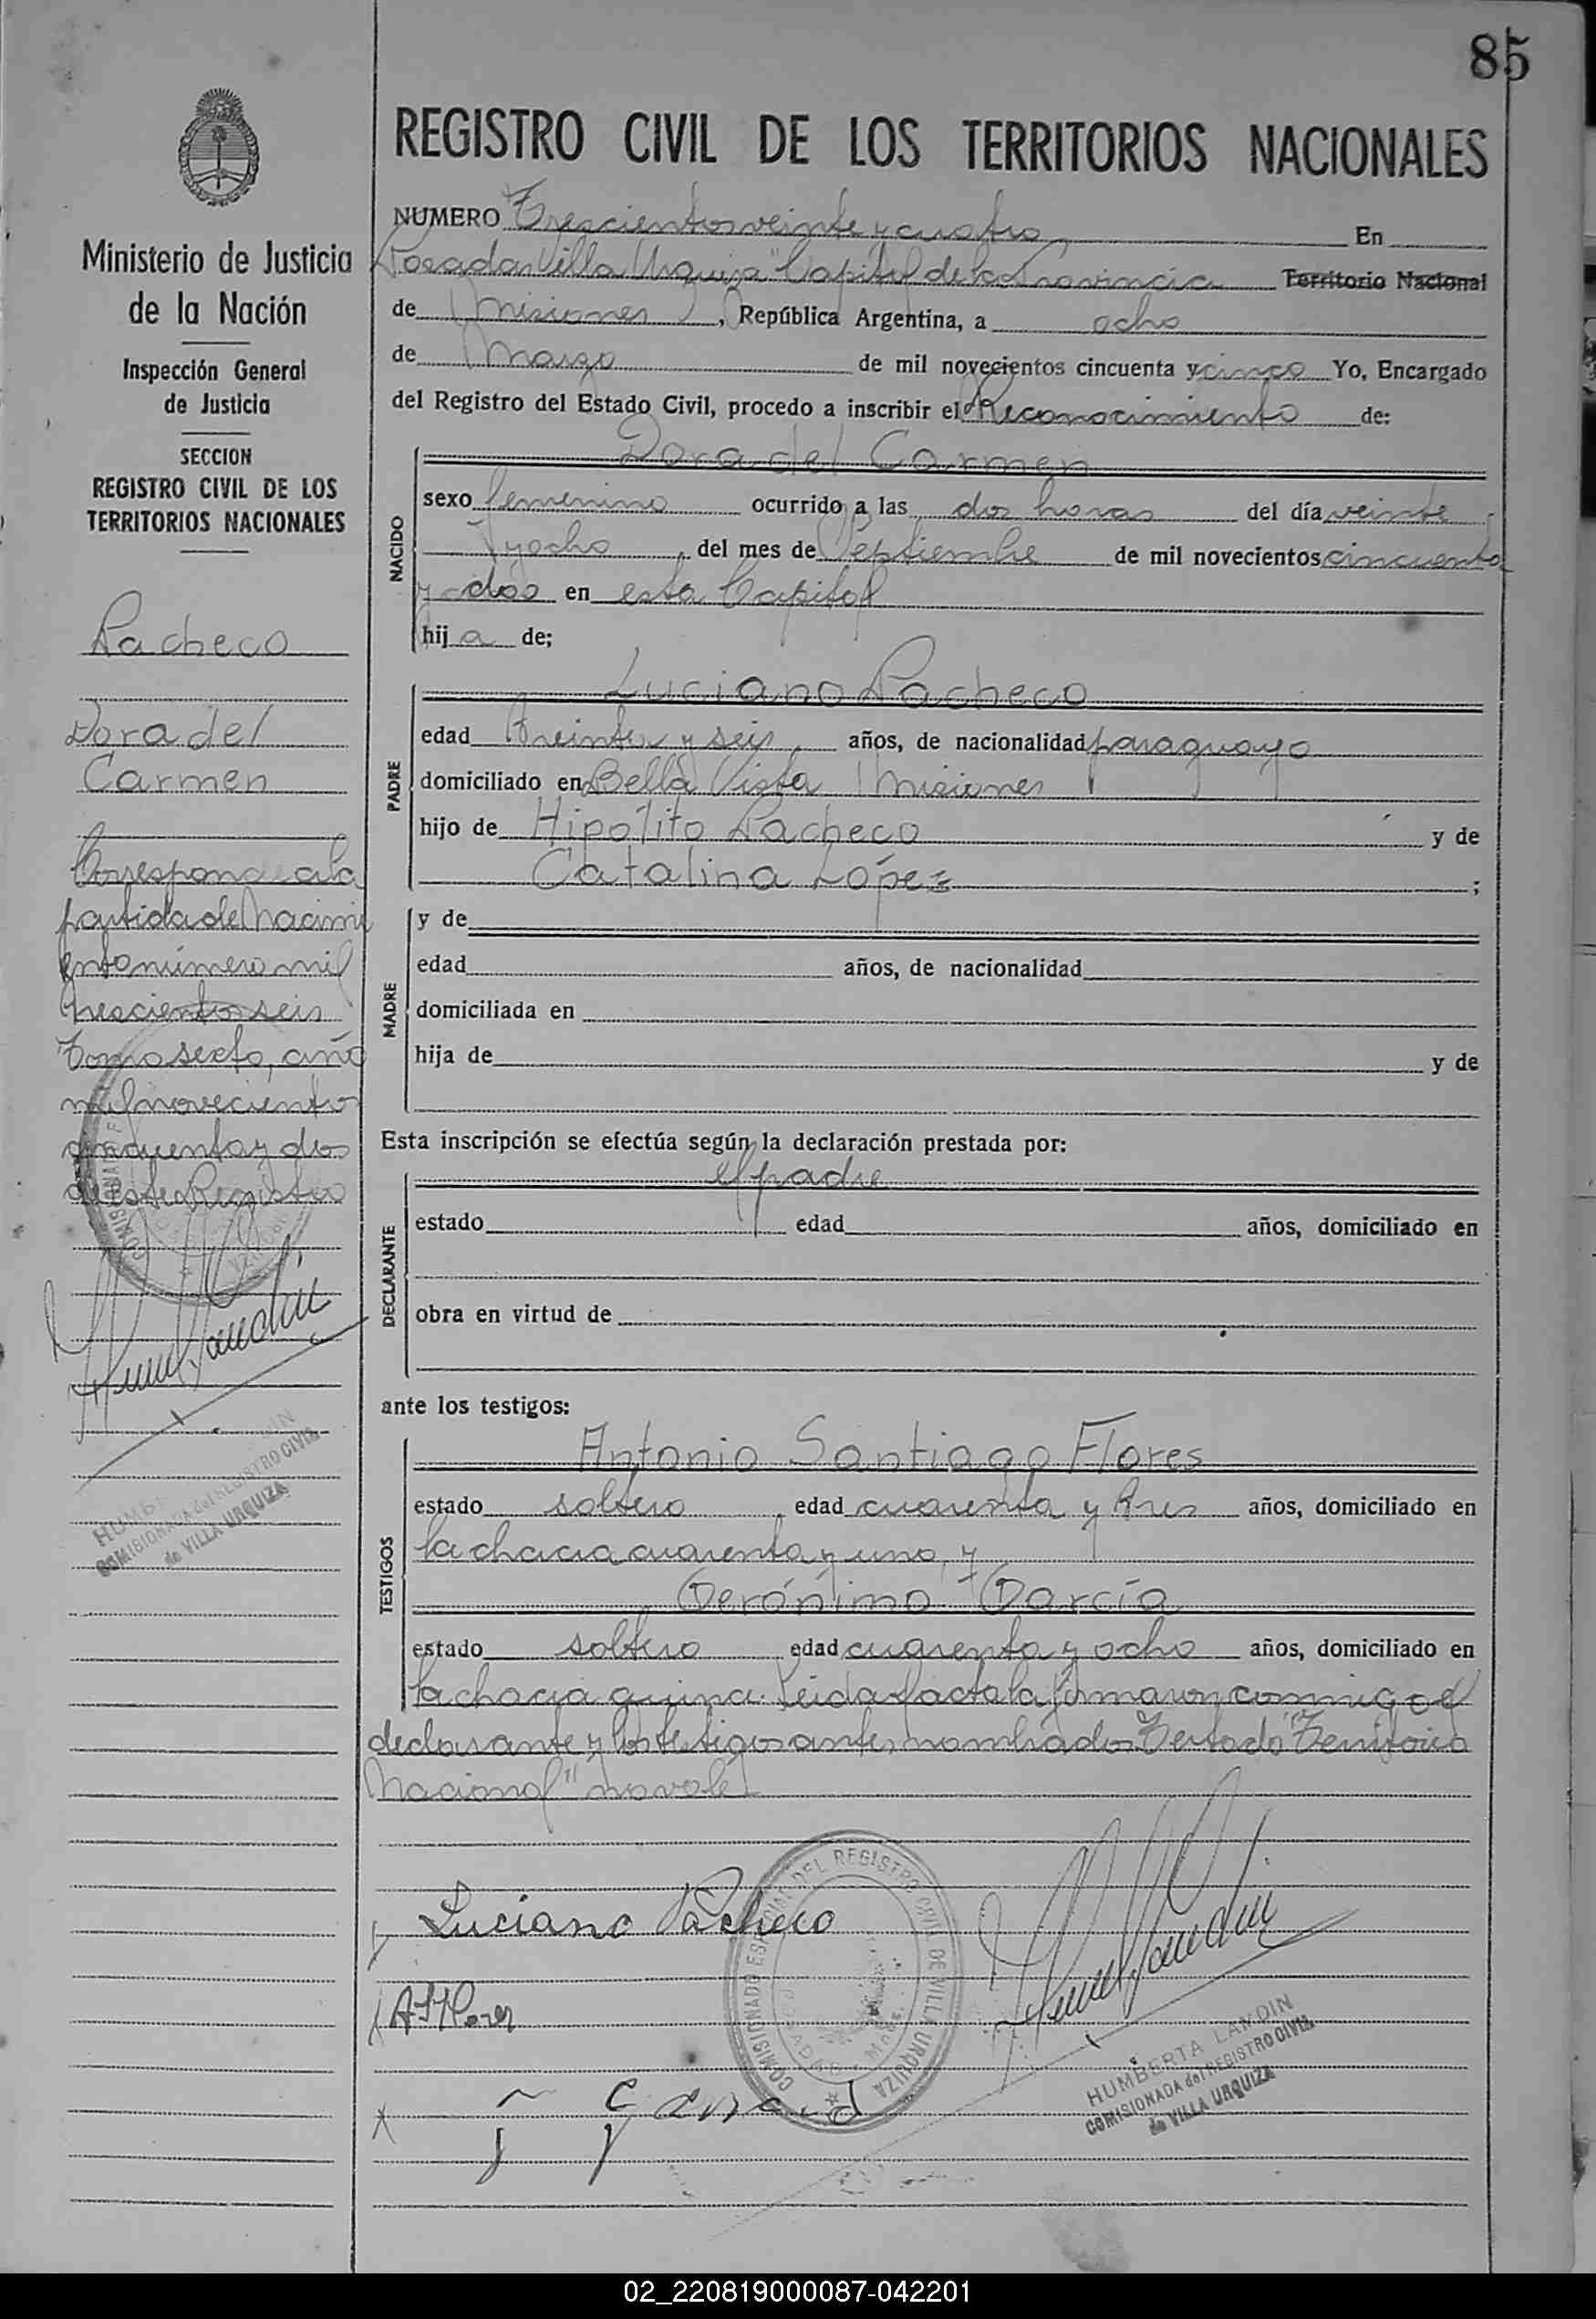 85
REGISTRO CIVIL DE LOS TERRITORIOS NACIONALES
NUMERO Trescientos veinte y cuatro En
Posadas Villa Urquiza "Capital de la Provincia Territorio Nacional
de Misiones, República Argentina, a ocho
de Marzo de mil novecientos cincuenta y cinco Yo, Encargado
del Registro del Estado Civil, procedo a inscribir el Reconocimiento de:
NACIDO
Dora del Carmen
sexo femenino ocurrido a las dos horas del día veinte
y ocho, del mes de Septiembre de mil novecientos cincuenta
y dos en esta Capital
hija de;
PADRE
Luciano Pacheco
edad treinta y seis años, de nacionalidad paraguayo
domiciliado en Bella Vista Misiones
hijo de Hipólito Pacheco y de
Catalina López ;
MADRE
y de
edad años, de nacionalidad
domiciliada en
hija de y de
Esta inscripción se efectúa según la declaración prestada por:
DECLARANTE
el padre
estado edad años, domiciliado en
obra en virtud de
ante los testigos:
TESTIGOS
Antonio Santiago Flores
estado soltero edad cuarenta y tres años, domiciliado en
la chacra cuarenta y uno, y
Gerónimo García
estado soltero edad cuarenta y ocho años, domiciliado en
la chacra quince. Leida el acta la firmaron conmigo el
declarante y los testigos antes nombrados Testado "Territorio
Nacional" no vale
Luciano Pacheco
A S Flores
COMISIONADO ESPECIAL DEL REGISTRO CIVIL DE VILLA URQUIZA
POSADAS
HUMBERTA LANDIN
COMISIONADA del REGISTRO CIVIL
de VILLA URQUIZA
Ministerio de Justicia
de la Nación
Inspección General
de Justicia
SECCION
REGISTRO CIVIL DE LOS
TERRITORIOS NACIONALES
Pacheco
Dora del
Carmen
Corresponde a la
partida de Nacimi
ento número mil
trescientos seis
Tomo sexto, año
mil novecientos
cincuenta y dos
de este Registro
COMISIONADA del REGISTRO CIVIL
de VILLA URQUIZA
02_220819000087-042201